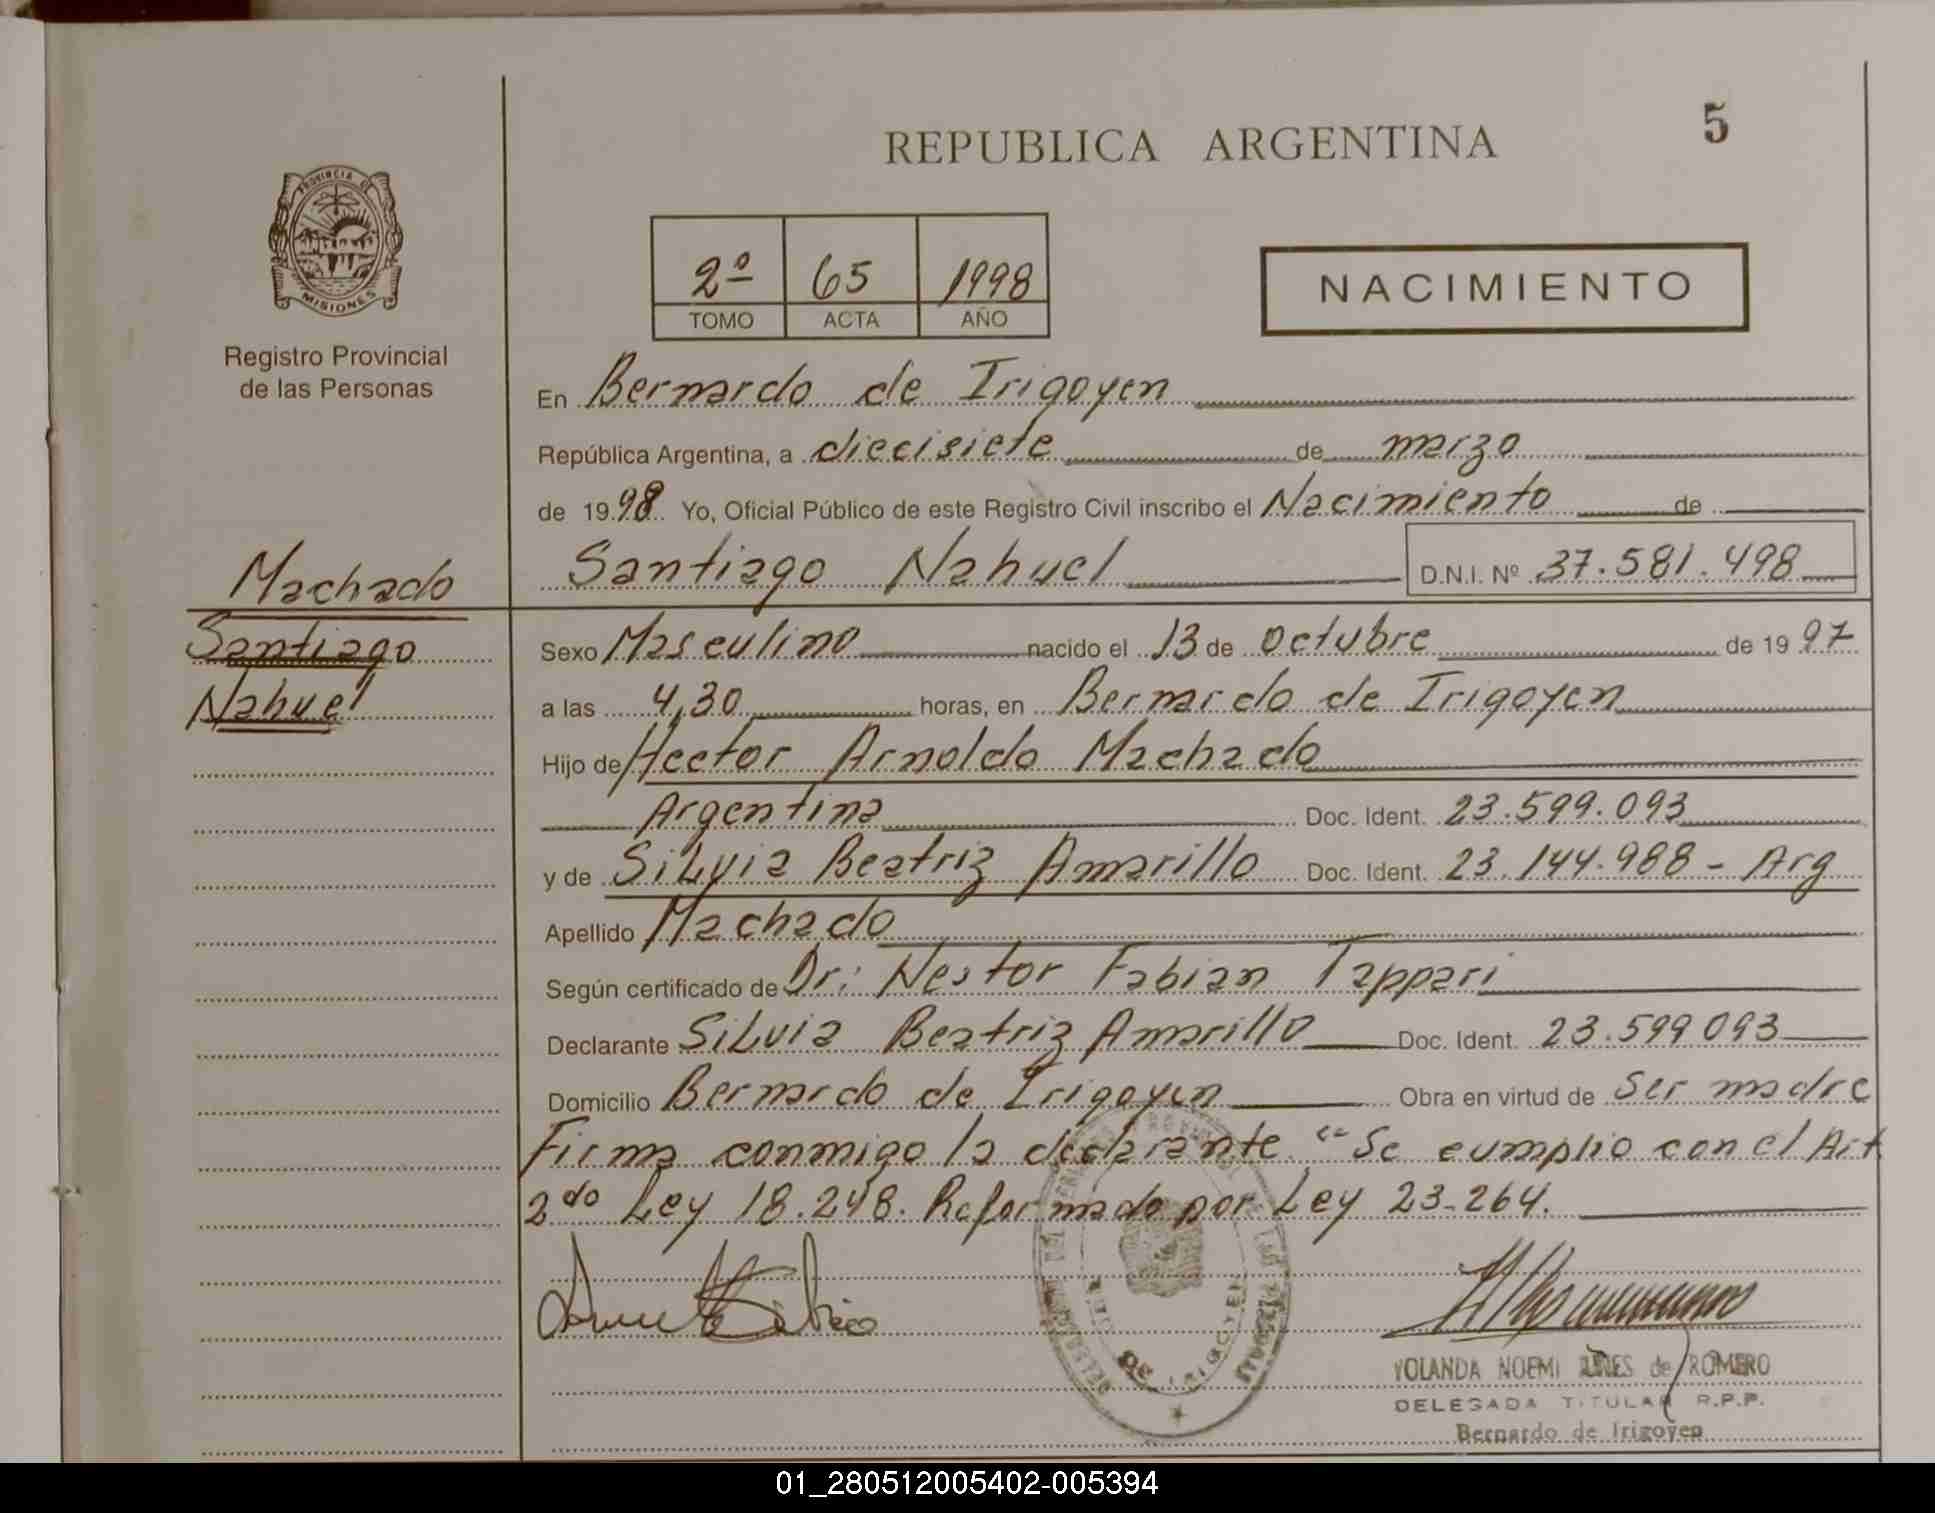 5
REPUBLICA ARGENTINA
PROVINCIA DE
MISIONES
Registro Provincial
de las Personas
2º 65 1998
TOMO ACTA AÑO
NACIMIENTO
En Bernardo de Irigoyen
República Argentina, a diecisiete de marzo
de 1998 Yo, Oficial Público de este Registro Civil inscribo el Nacimiento de
Santiago Nahuel D.N.I. Nº 37.581.498
Machado
Santiago
Nahuel
Sexo Masculino nacido el 13 de Octubre de 1997
a las 4,30 horas, en Bernardo de Irigoyen
Hijo de Hector Arnoldo Machado
Argentina Doc. Ident. 23.599.093
y de Silvia Beatriz Amarillo Doc. Ident. 23.144.988 - Arg
Apellido Machado
Según certificado de Dr: Nestor Fabian Tappari
Declarante Silvia Beatriz Amarillo Doc. Ident. 23.599 093
Domicilio Bernardo de Irigoyen Obra en virtud de ser madre
Firma conmigo la declarante. "Se cumplio con el Art
2do Ley 18.248. Reformado por Ley 23-264.
YOLANDA NOEMI de ROMERO
DELEGADA TITULAR R.P.P.
Bernardo de Irigoyen
01_280512005402-005394